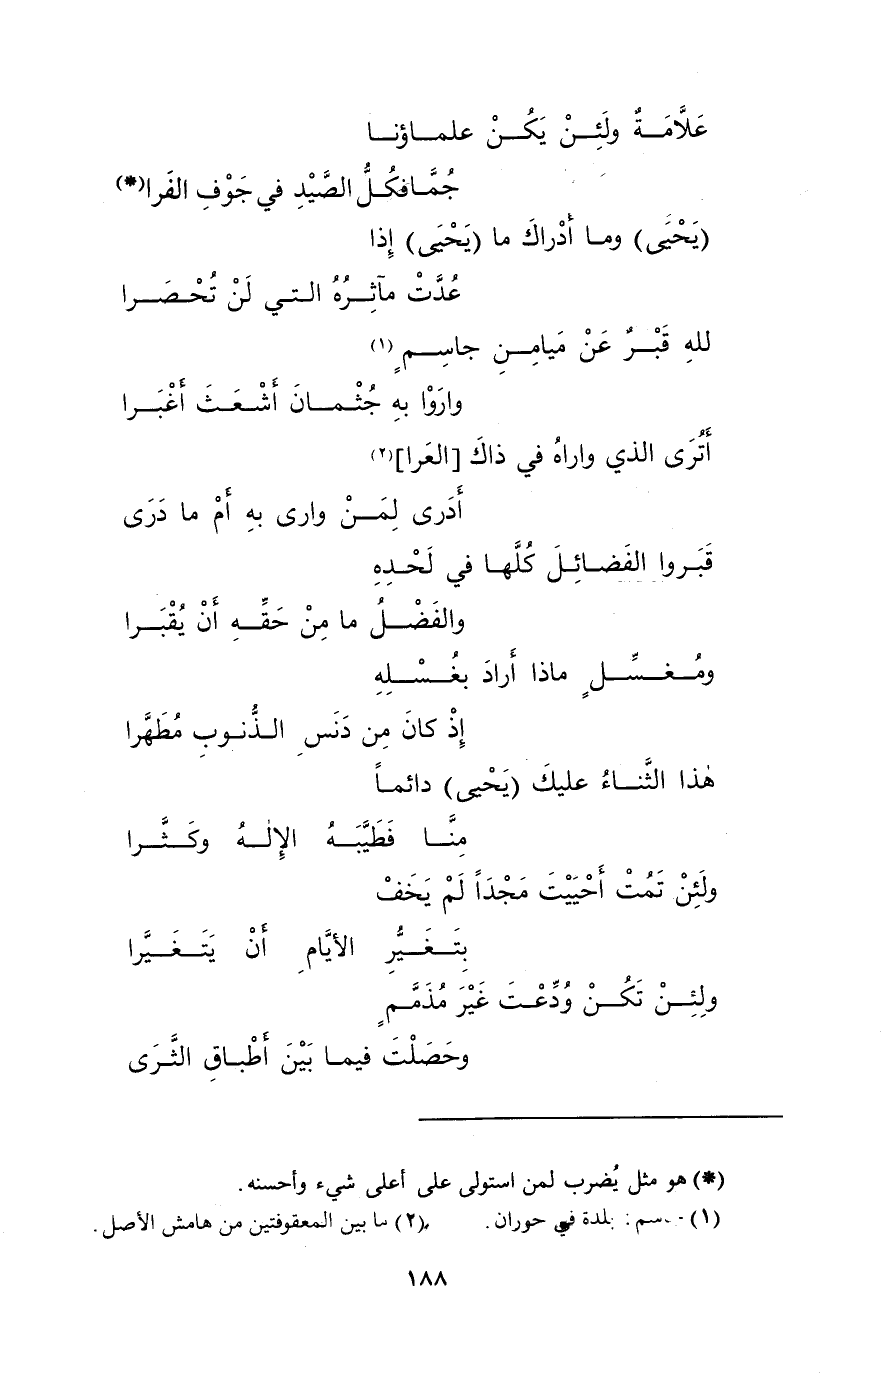 عَلَّامَةٌ ولَئِنْ يَكُنْ علماؤنا
جُمَّافكُلُّ الصَّيْدِ في جَوْفِ الفَرا(*)
(يَحْيَى) وما أَدْراكَ ما (يَحْيَى) إذا
عُدَّتْ مآثِرُهُ التي لَنْ تُحْصَرا
للهِ قَبْرٌ عَنْ مَيامِنِ جاسِمٍ (١)
وارَوْا بهِ جُثْمانَ أَشْعَثَ أَغْبَرا
أَتُرَى الذي واراهُ في ذاكَ [العَرا](٢)
أَدَرى لِمَنْ وارى بهِ أَمْ ما دَرَى
قَبَروا الفَضائِلَ كُلَّها في لَحْدِهِ
والفَضْلُ ما مِنْ حَقِّهِ أَنْ يُقْبَرا
ومُغسِّلٍ ماذا أَرادَ بغُسْلِهِ
إذْ كانَ مِن دَنَسِ الذُّنوبِ مُطَهَّرا
هٰذا الثَّناءُ عليكَ (يَحْيى) دائماً
مِنَّا فَطَيَّبَهُ الإلٰهُ وكَثَّرا
ولَئِنْ تَمُتْ أَحْيَيْتَ مَجْدَاً لَمْ يَخَفْ
بِتَغَيُّرِ الأيَّامِ أَنْ يَتَغَيَّرا
ولِئِنْ تَكُنْ وُدِّعْتَ غَيْرَ مُذَمَّمٍ
وحَصَلْتَ فيما بَيْنَ أَطْباقِ الثَّرَى
(*) هو مثل يُضرب لمن استولى على أعلى شيء وأحسنه.
(١) جاسم: بلدة في حوران. (٢) ما بين المعقوفتين من هامش الأصل.
١٨٨